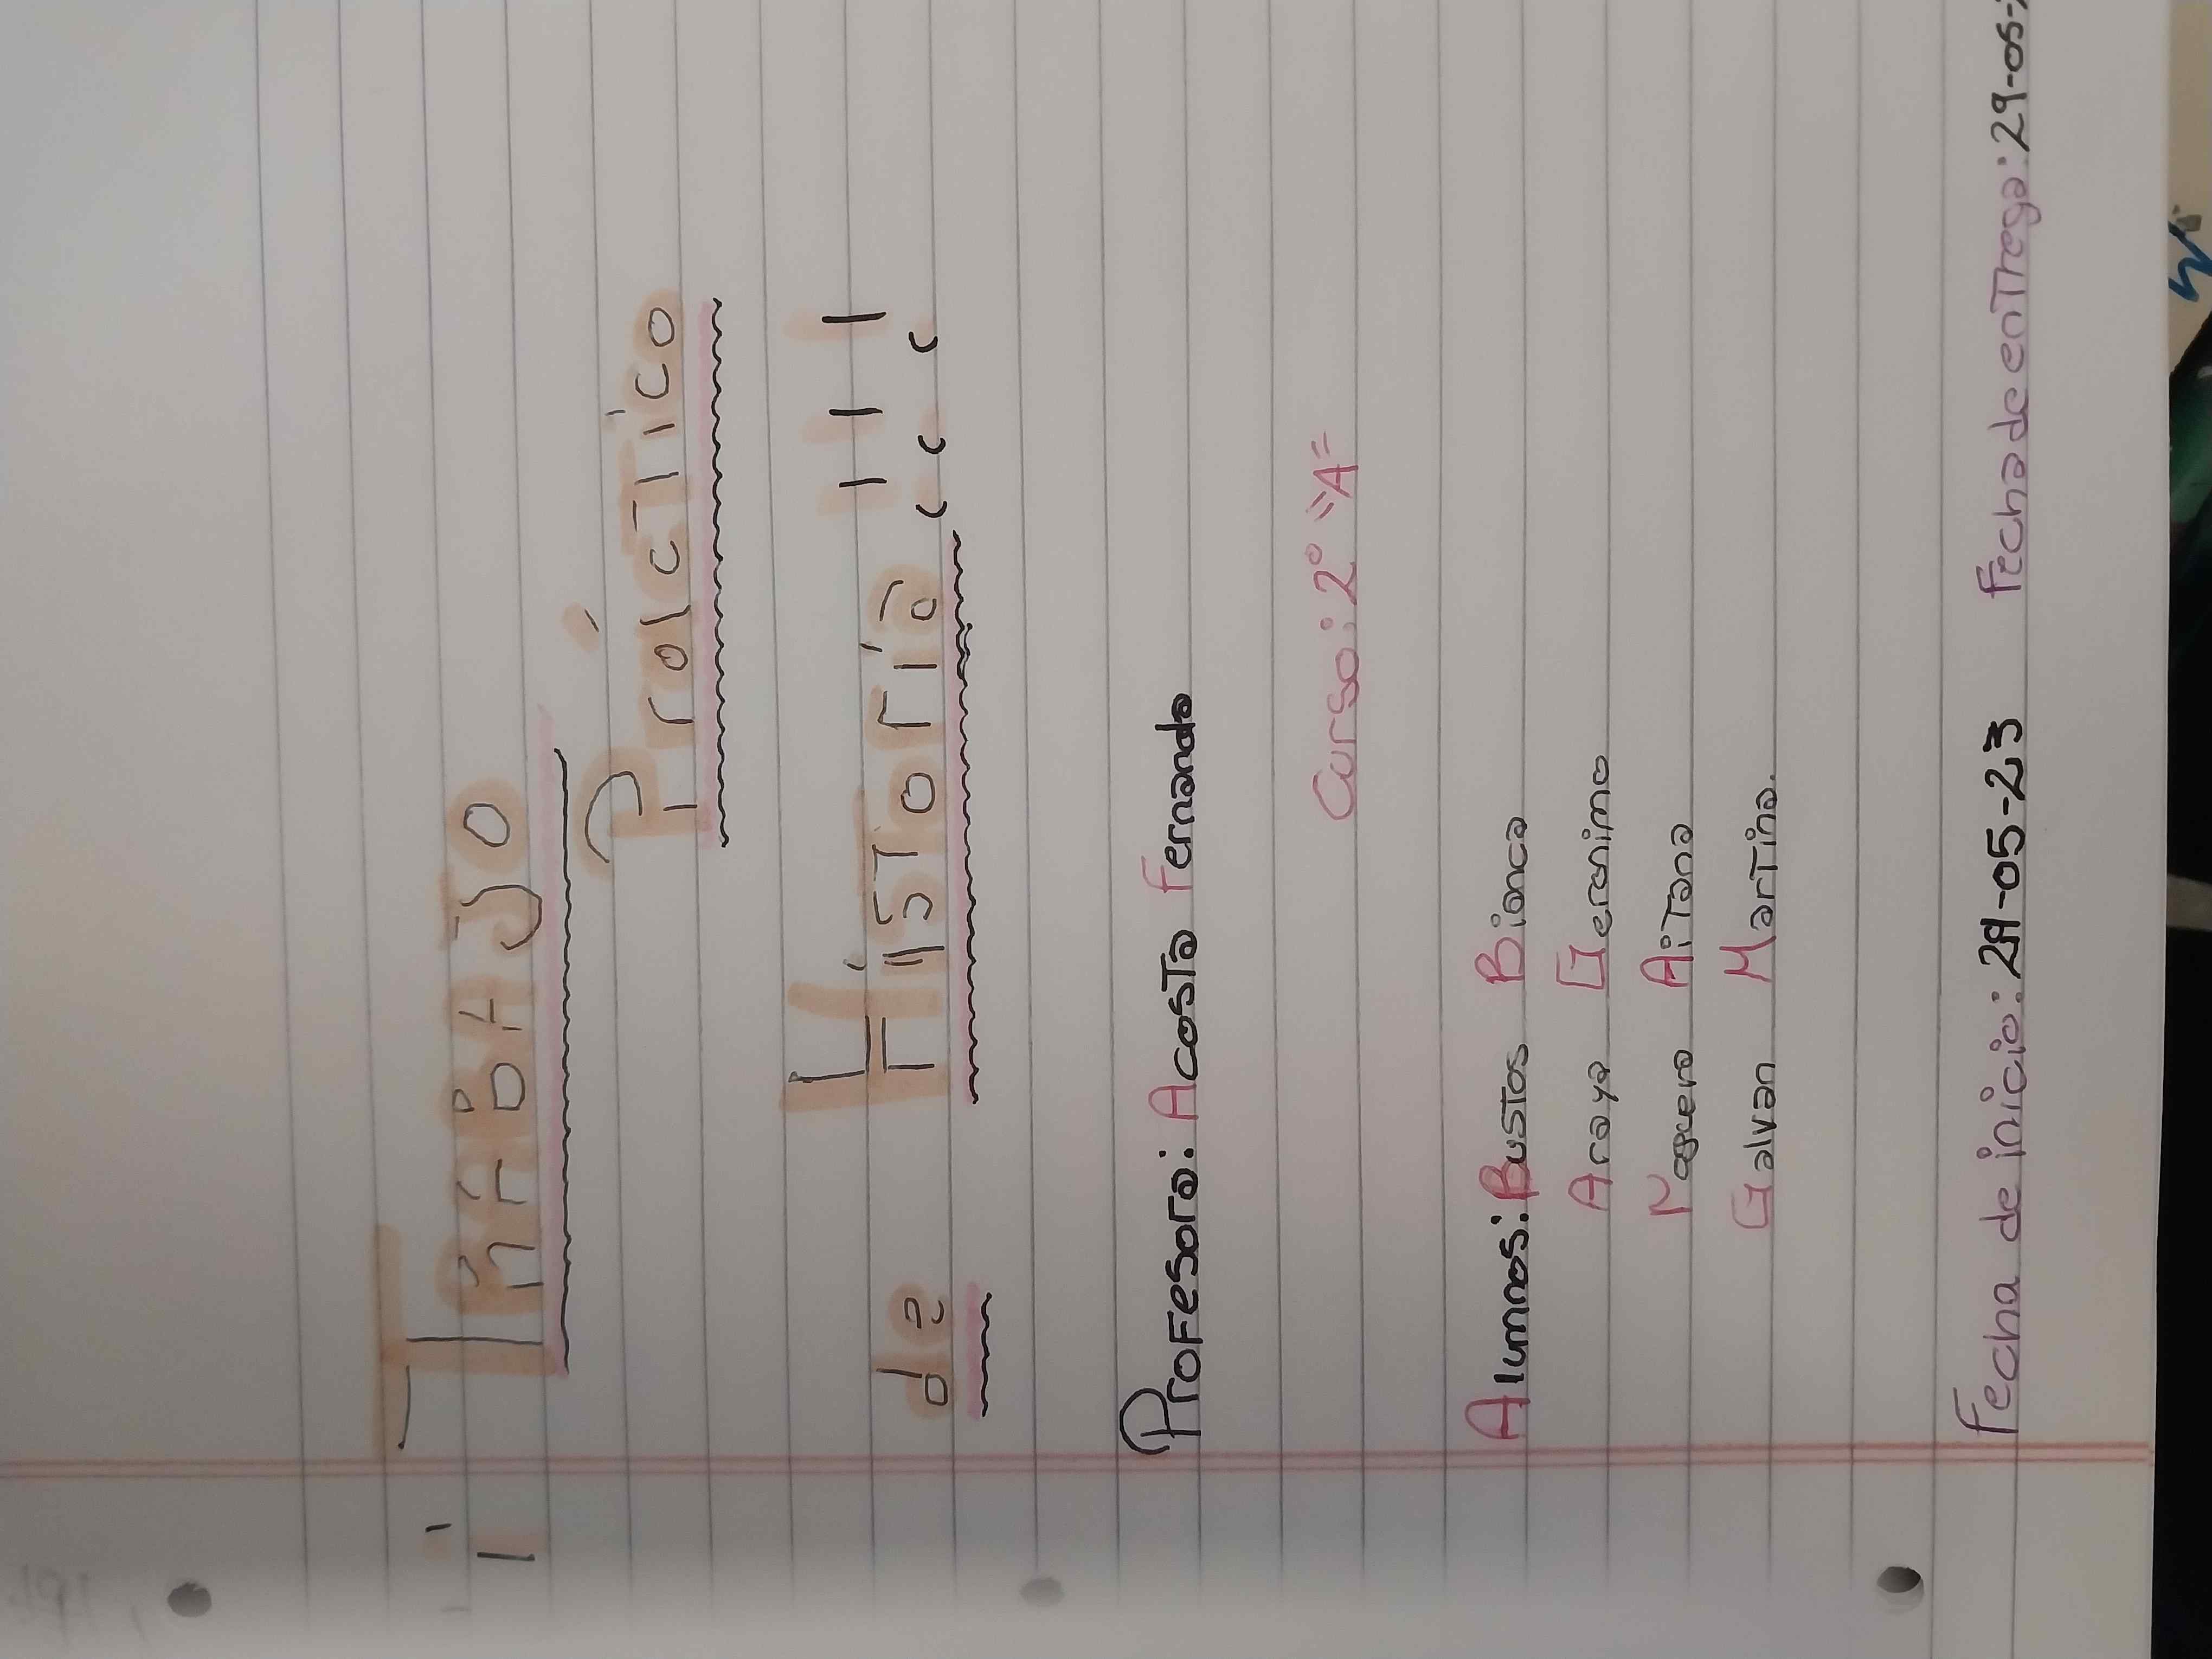 ¡TRABAJO
Práctico
de Historia!!!
Profesora: Acosta Fernanda
Curso: 2° "A"
Alumnos: Bustos Bianca
Araya Geronimo
Noguera Aitana
Galvan Martina.
Fecha de inicio: 29-05-23 Fecha de entrega: 29-05-